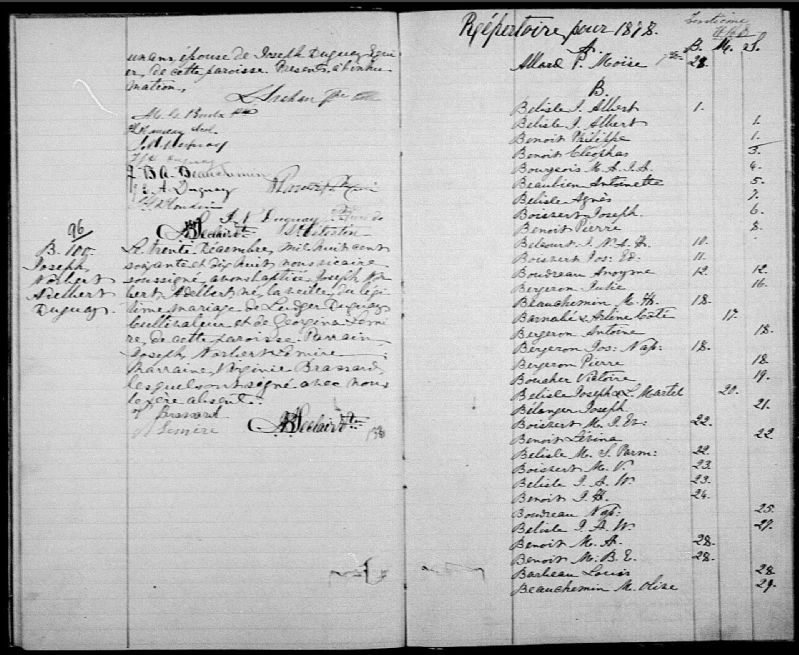 un ans, épouse de Joseph Duguay, Equi-
er, de cette paroisse. Présents à l'inhu-
mation,
J. B. A. Beauchemin
J. E. A. Duguay
J. N. Duguay
St Celestin
A. B. Leclair Ptre
96
B. 100.
Joseph
Norbert
Adelbert
Duguay
Le trente Décembre, mil huit cent
soixante et dix huit nous vicaire
soussigné avons baptisé Joseph Nor-
bert Adelbert né, la veille, du légi-
time mariage de Ludger Duguay
Cultivateur et de Georgina Lemi-
re, de cette paroisse. Parrain
Joseph Norbert Lemire,
Marraine, Virginie Brassard,
lesquels ont signé avec nous
le père absent.
V. Brassard
N. Lemire
A. B. Leclair Ptre
Répertoire pour 1878.
A. B. M. S.
Allard P. Moise 28.
B.
Belisle J. Albert 1.
Belisle J. Albert 1.
Benoit Philippe 1.
Benoit Cléophas 3.
Bourgeois M. A. J. A. 4.
Beaubien Antoinette 5.
Belisle Agnès 7.
Boisvert Joseph 6.
Benoit Pierre 8.
Belcourt J. N. A. H. 10.
Boisvert Jos: Ed: 11.
Boudreau Anoyme 12. 12.
Bergeron Julie 16.
Beauchemin M. H. 18.
Barnabé & Arlène Côté 17.
Bergeron Antoine 18.
Bergeron Jos: Nap: 18.
Bergeron Pierre 18.
Boucher Victoire 19.
Belisle Joseph & L. Martel 20.
Bélanger Joseph 21.
Boisvert M. J. Et: 22.
Benoit Lézina 22.
Belisle M. S. Parm: 22.
Boisvert M. V. 23.
Belisle J. A. W. 23.
Benoit J. H. 24.
Boudreau Nap: 25.
Belisle J. A. W. 27.
Benoit M. A. 28.
Benoit M. B. E. 28.
Barbeau Louis 28.
Beauchemin M. Olise 29.